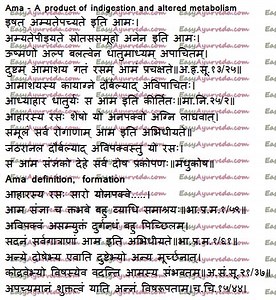 Ama - A product of indigestion and altered metabolism
इषत् अम्यतेपच्यते इति आमः।
अम्यतेपीड्यते स्रोतससमूहो अनेन इति आमः।
उष्मणो अल्प बलत्वेन धातुमाध्यम अपाचितम्।
दुष्टम् आमाशय गत रसम् आम प्रचक्षते॥अ.हृ.सू.१३/२५॥
आमाशयस्य कायाग्ने दौर्बल्याद् अविपाचितः।
आध्याहार धातुयः स आम इति कीर्तितः॥मा.नि.२५/२॥
आहारस्य रसः शेषो यो अनपक्वो अग्नि लाघवात्।
स मूलं सर्व रोगाणाम् आम इति अभिधीयते॥
जठरानल दौर्बल्याद् अविपक्वस्तु यो रसः।
स आम संजंको देहे सर्व दोष प्रकोपणः॥मधुकोष॥
Ama definition, formation
आहारस्य रसः सारो योनपक्वो....।
आम संजा च लभते बहु व्याधि समाश्रयः॥भा.प्र.म.१/५९॥
अविपक्वं असम्युक्तं दुर्गन्धं बहु पिच्छिलम्।
सदनं सर्वगात्राणां आम इति अभिधीयते॥भा.प्र.१/६१॥
अन्ये दोषेभ्य एवाति दुष्टेभ्यो अन्य मूर्च्छनात्।
कोद्रवेभ्यो विषस्येव वदन्ति आमस्य संभवतम्॥अ.सं.सू.२१/३७॥
अपच्यमानं शुक्तत्वं याति अन्नं विषरूपताम्॥च.चि.१५/४४॥
EasyAyurveda.com